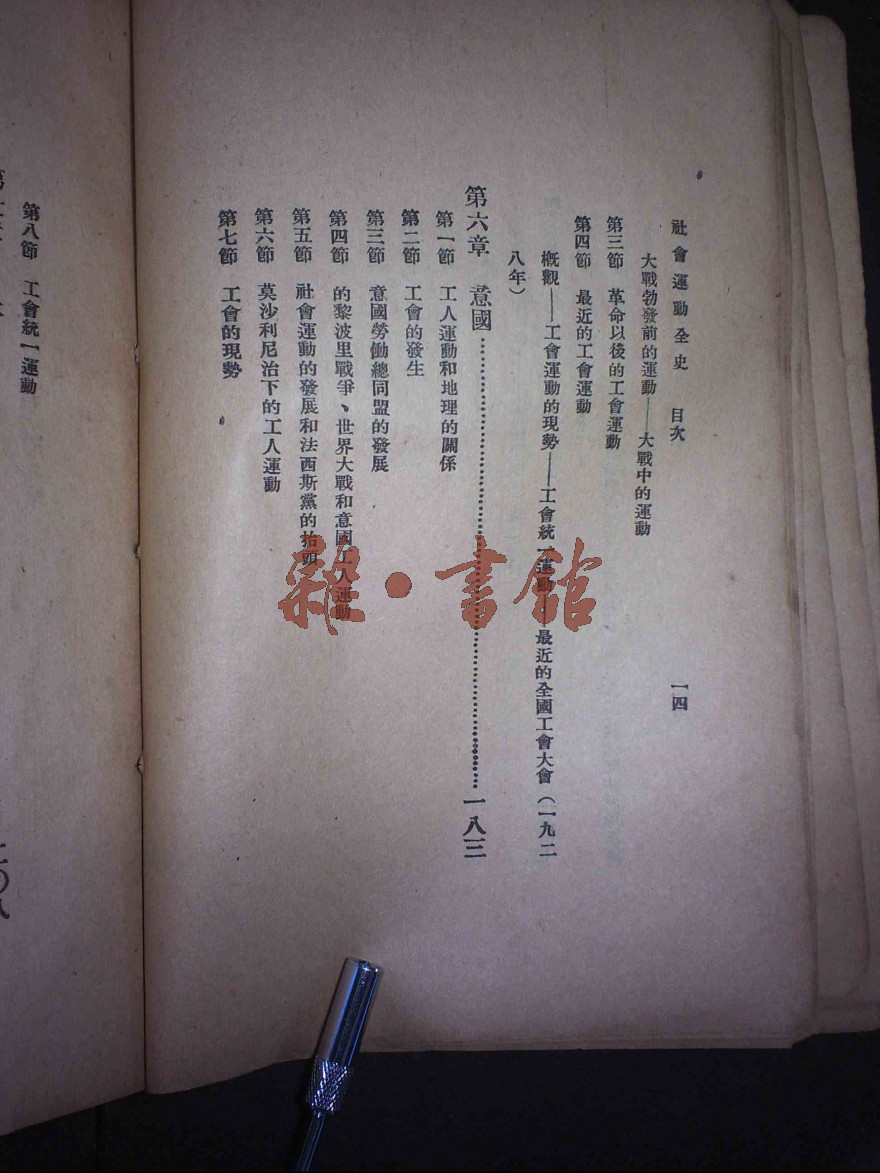 社會運動全史 目次 一四
大戰勃發前的運動——大戰中的運動
第三節 革命以後的工會運動
第四節 最近的工會運動
概觀——工會運動的現勢——工會統一運動——最近的全國工會大會(一九二
八年)
第六章 意國…………一八三
第一節 工人運動和地理的關係
第二節 工會的發生
第三節 意國勞働總同盟的發展
第四節 的黎波里戰爭、世界大戰和意國工人運動
第五節 社會運動的發展和法西斯黨的抬頭
第六節 莫沙利尼治下的工人運動
第七節 工會的現勢
第八節 工會統一運動
雜·書館